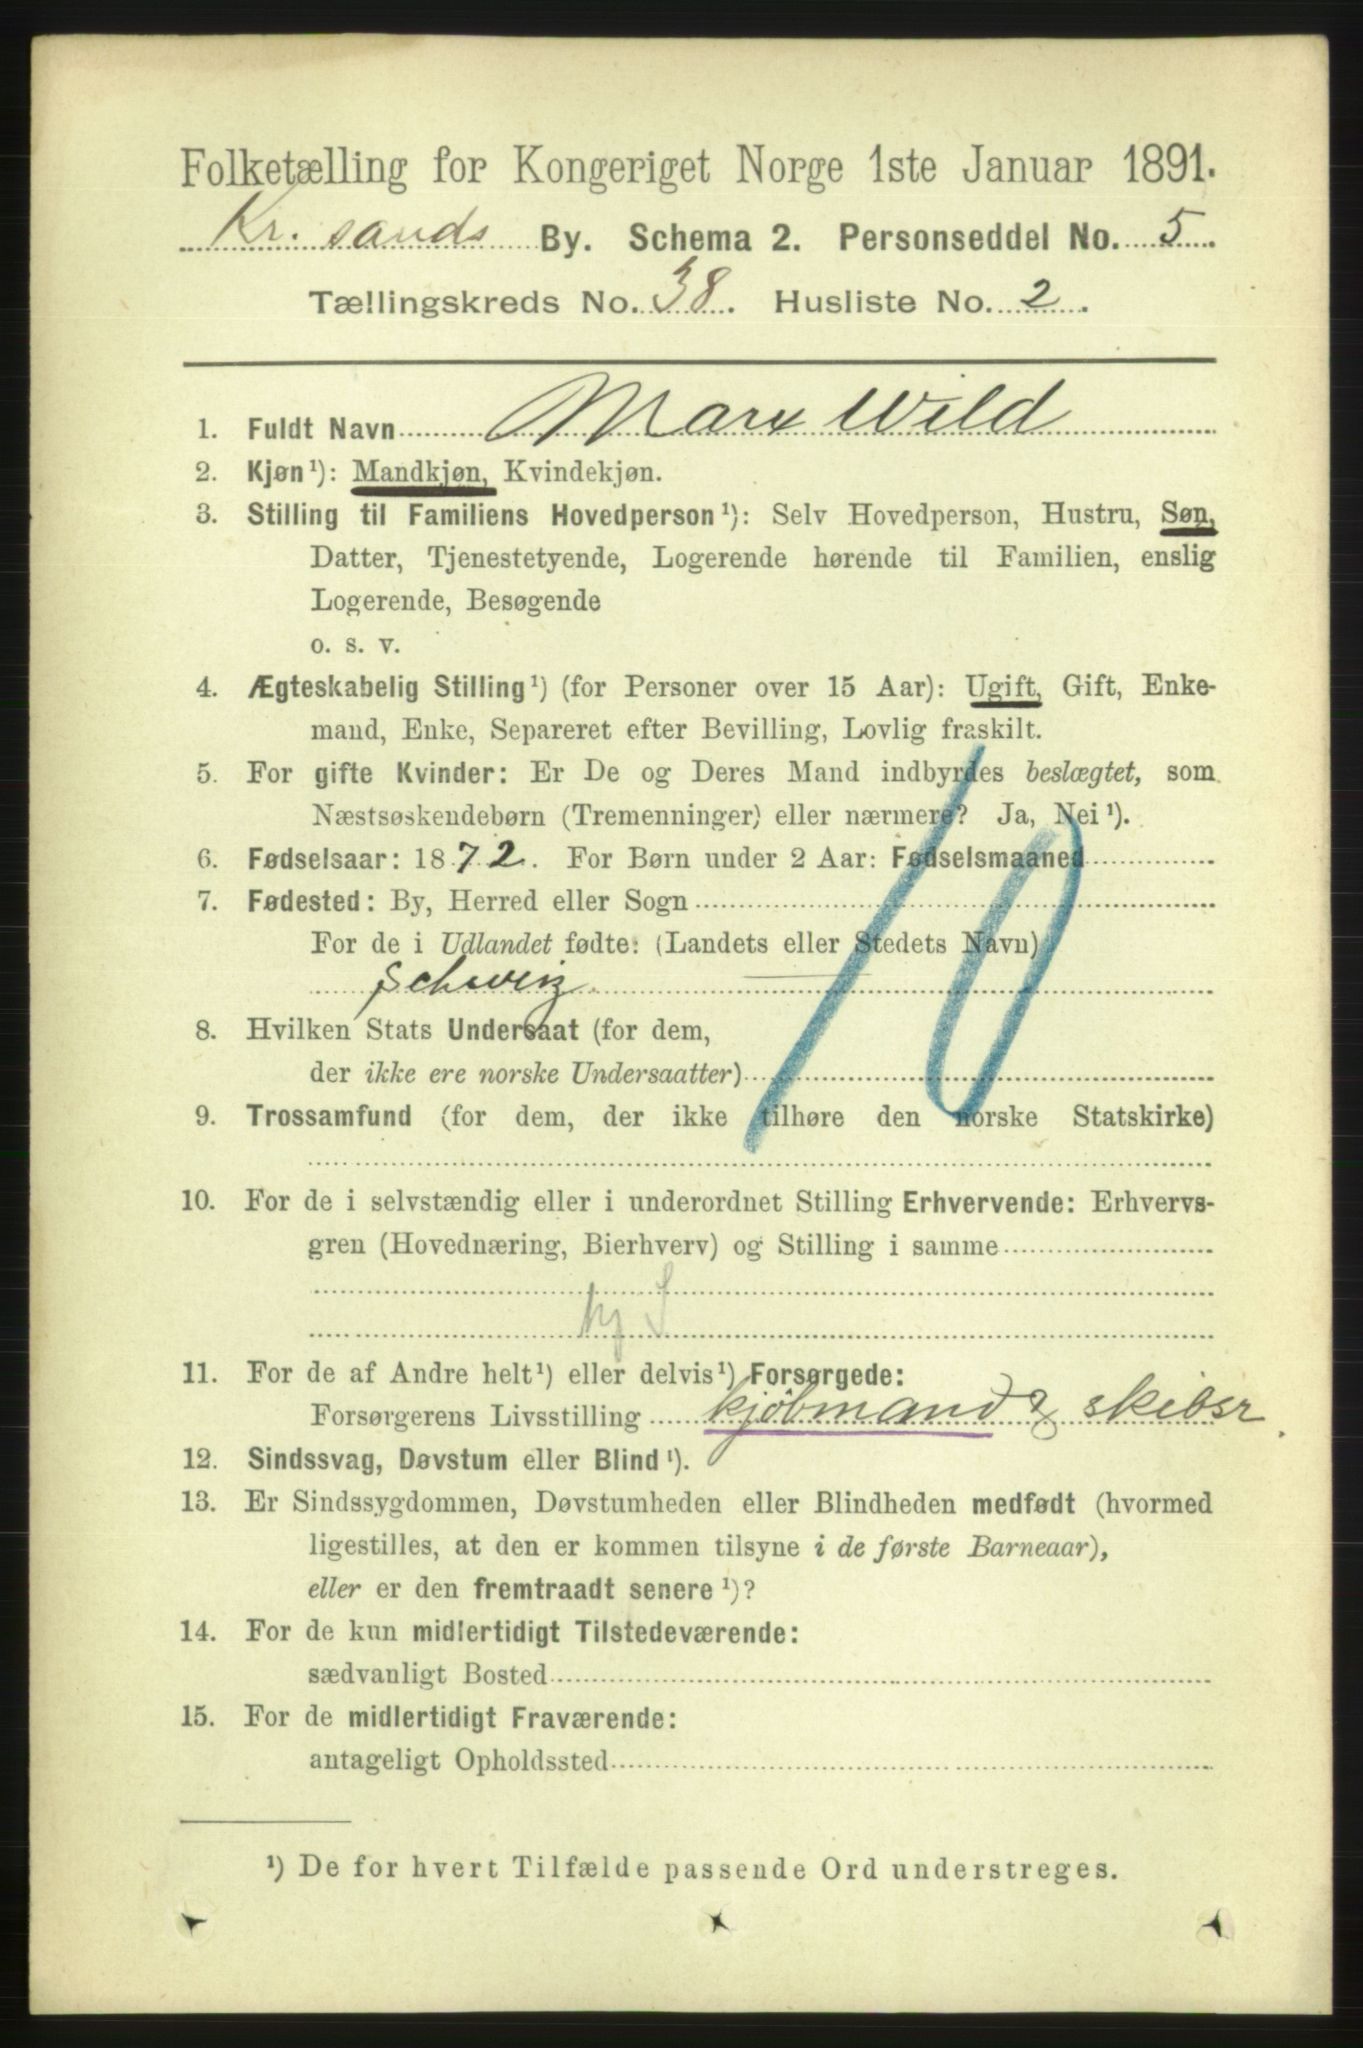 Folketælling for Kongeriget Norge 1ste Januar 1891.
Kr. sands By. Schema 2. Personseddel No. 5.
Tællingskreds No. 38. Husliste No. 2.
1. Fuldt Navn Marx Wild
2. Kjøn¹): Mandkjøn, Kvindekjøn.
3. Stilling til Familiens Hovedperson¹): Selv Hovedperson, Hustru, Søn,
Datter, Tjenestetyende, Logerende hørende til Familien, enslig
Logerende, Besøgende
o. s. v.
4. Ægteskabelig Stilling¹) (for Personer over 15 Aar): Ugift, Gift, Enke-
mand, Enke, Separeret efter Bevilling, Lovlig fraskilt.
5. For gifte Kvinder: Er De og Deres Mand indbyrdes beslægtet, som
Næstsøskendebørn (Tremenninger) eller nærmere? Ja, Nei¹).
6. Fødselsaar: 1872. For Børn under 2 Aar: Fødselsmaaned
7. Fødested: By, Herred eller Sogn
For de i Udlandet fødte: (Landets eller Stedets Navn)
Schweiz
10
8. Hvilken Stats Undersaat (for dem,
der ikke ere norske Undersaatter)
9. Trossamfund (for dem, der ikke tilhøre den norske Statskirke)
10. For de i selvstændig eller i underordnet Stilling Erhvervende: Erhvervs-
gren (Hovednæring, Bierhverv) og Stilling i samme
hj S
11. For de af Andre helt¹) eller delvis¹) Forsørgede:
Forsørgerens Livsstilling kjøbmand & skibsr.
12. Sindssvag, Døvstum eller Blind¹).
13. Er Sindssygdommen, Døvstumheden eller Blindheden medfødt (hvormed
ligestilles, at den er kommen tilsyne i de første Barneaar),
eller er den fremtraadt senere¹)?
14. For de kun midlertidigt Tilstedeværende:
sædvanligt Bosted
15. For de midlertidigt Fraværende:
antageligt Opholdssted
¹) De for hvert Tilfælde passende Ord understreges.